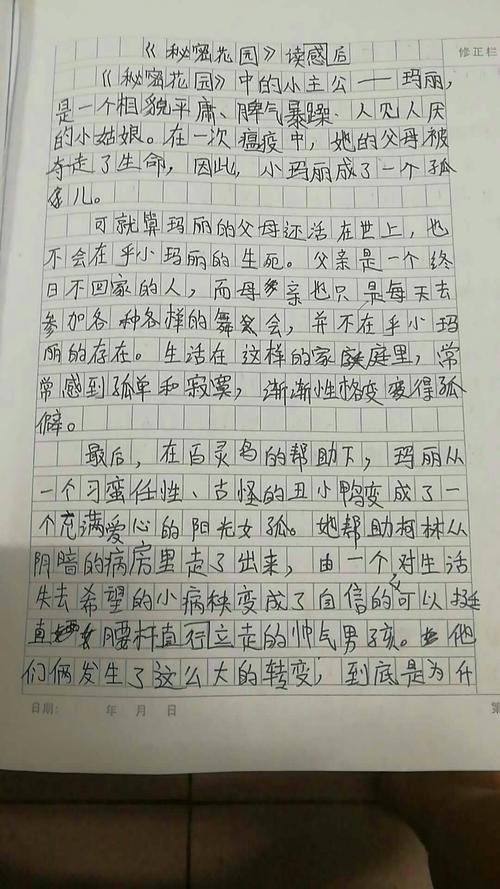 《秘密花园》读感后
修正栏
《秘密花园》中的小主公——玛丽，
是一个相貌平庸、脾气暴躁、人见人厌
的小姑娘。在一次瘟疫中，她的父母被
夺走了生命，因此，小玛丽成了一个孤
儿。
可就算玛丽的父母还活在世上，也
不会在乎小玛丽的生死。父亲是一个终
日不回家的人，而母亲也只是每天去
参加各种各样的舞会，并不在乎小玛
丽的存在。生活在这样的家庭里，常
常感到孤单和寂寞，渐渐性格变得孤
僻。
最后，在百灵鸟的帮助下，玛丽从
一个习蛮任性、古怪的丑小鸭变成了一
个充满爱心的阳光女孤。她帮助柯林从
阴暗的病房里走了出来，由一个对生活
失去希望的小病秧变成了自信的可以挺
直腰杆直行立走的帅气男孩。他
们俩发生了这么大的转变，到底是为什
日期： 年 月 日
第